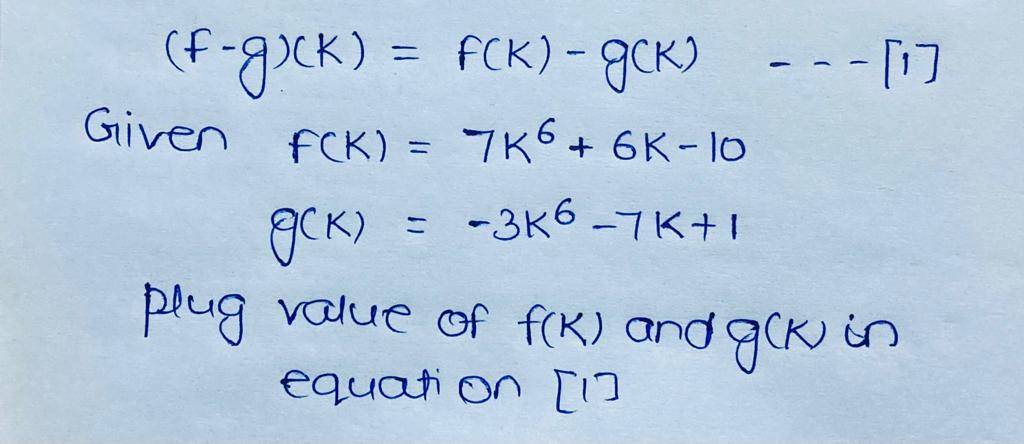 (f-g)(K) = f(K) - g(K) - - - [1]
Given f(K) = 7K⁶ + 6K - 10
g(K) = -3K⁶ - 7K + 1
plug value of f(K) and g(K) in
equation [1]